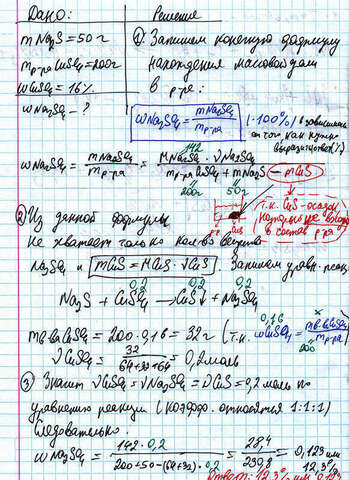 Дано:
Решение
mNa₂S = 50 г
mр-ра CuSO₄ = 200 г
wCuSO₄ = 16%
wNa₂SO₄ - ?
① Запишем конечную формулу
нахождения массовой доли
в р-ре:
wNa₂SO₄ = mNa₂SO₄ / mр-ра (·100%)
в зависимости
от того, как нужно
выразить ответ)
wNa₂SO₄ = mNa₂SO₄ / mр-ра = MNa₂SO₄ · νNa₂SO₄ / mр-ра CuSO₄ + mNa₂S - mCuS
142
200г
50г
т.к. CuS-осадок,
который не входит
в состав р-ра
р-р
CuS
② Из данной формулы
не хватает только кол-во вещества
Na₂SO₄ и mCuS = MCuS · νCuS. Запишем уравн. реакц.
0,2 0,2 0,2
Na₂S + CuSO₄ — CuS↓ + Na₂SO₄
mв-ва CuSO₄ = 200 · 0,16 = 32 г (т.к. wCuSO₄ = mв-ва CuSO₄ / mр-ра)
0,16
x
200
νCuSO₄ = 32 / 64+32+64 = 0,2 моль
③ Значит νCuSO₄ = νNa₂SO₄ = νCuS = 0,2 моль по
уравнению реакции (коэффф. относятся 1:1:1)
Следовательно:
wNa₂SO₄ = 142 · 0,2 / 200+50-(64+32)·0,2 = 28,4 / 230,8 = 0,123 или
12,3%
Ответ: 12,3% или 0,123